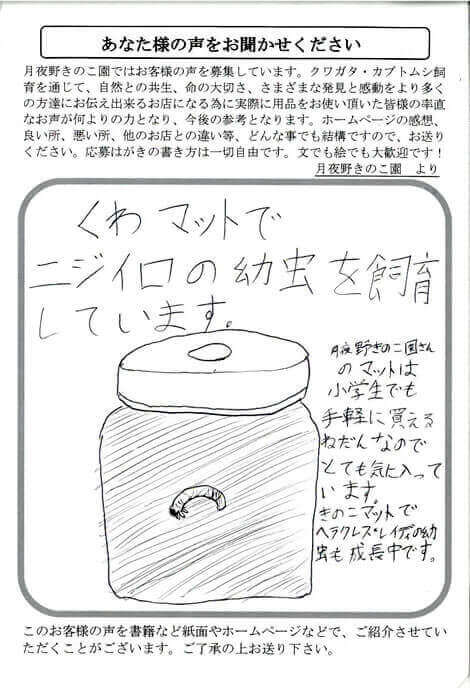 あなた様の声をお聞かせください
月夜野きのこ園ではお客様の声を募集しています。クワガタ・カブトムシ飼
育を通じて、自然との共生、命の大切さ、さまざまな発見と感動をより多く
の方達にお伝え出来るお店になる為に実際に用品をお使い頂いた皆様の率直
なお声が何よりの力となり、今後の参考となります。ホームページの感想、
良い所、悪い所、他のお店との違い等、どんな事でも結構ですので、お送り
ください。応募はがきの書き方は一切自由です。文でも絵でも大歓迎です！
月夜野きのこ園　より
くわマットで
ニジイロの幼虫を飼育
しています。
月夜野きのこ園さん
のマットは
小学生でも
手軽に買える
ねだんなので
とても気に入って
います。
きのこマットで
ヘラクレス・レイディの幼
虫も成長中です。
このお客様の声を書籍など紙面やホームページなどで、ご紹介させてい
ただくことがございます。ご了承の上お送り下さい。